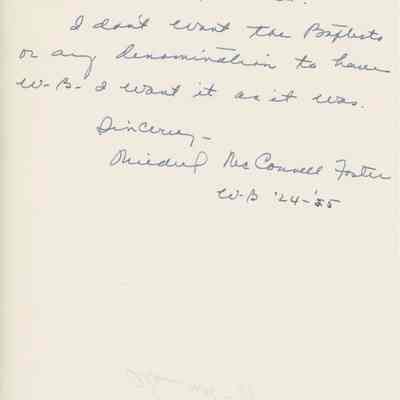 I don't want the Baptists
or any denomination to have
W-B- I want it as it was.
Sincerely -
Mildred McConnell Foster
W-B '24-'25